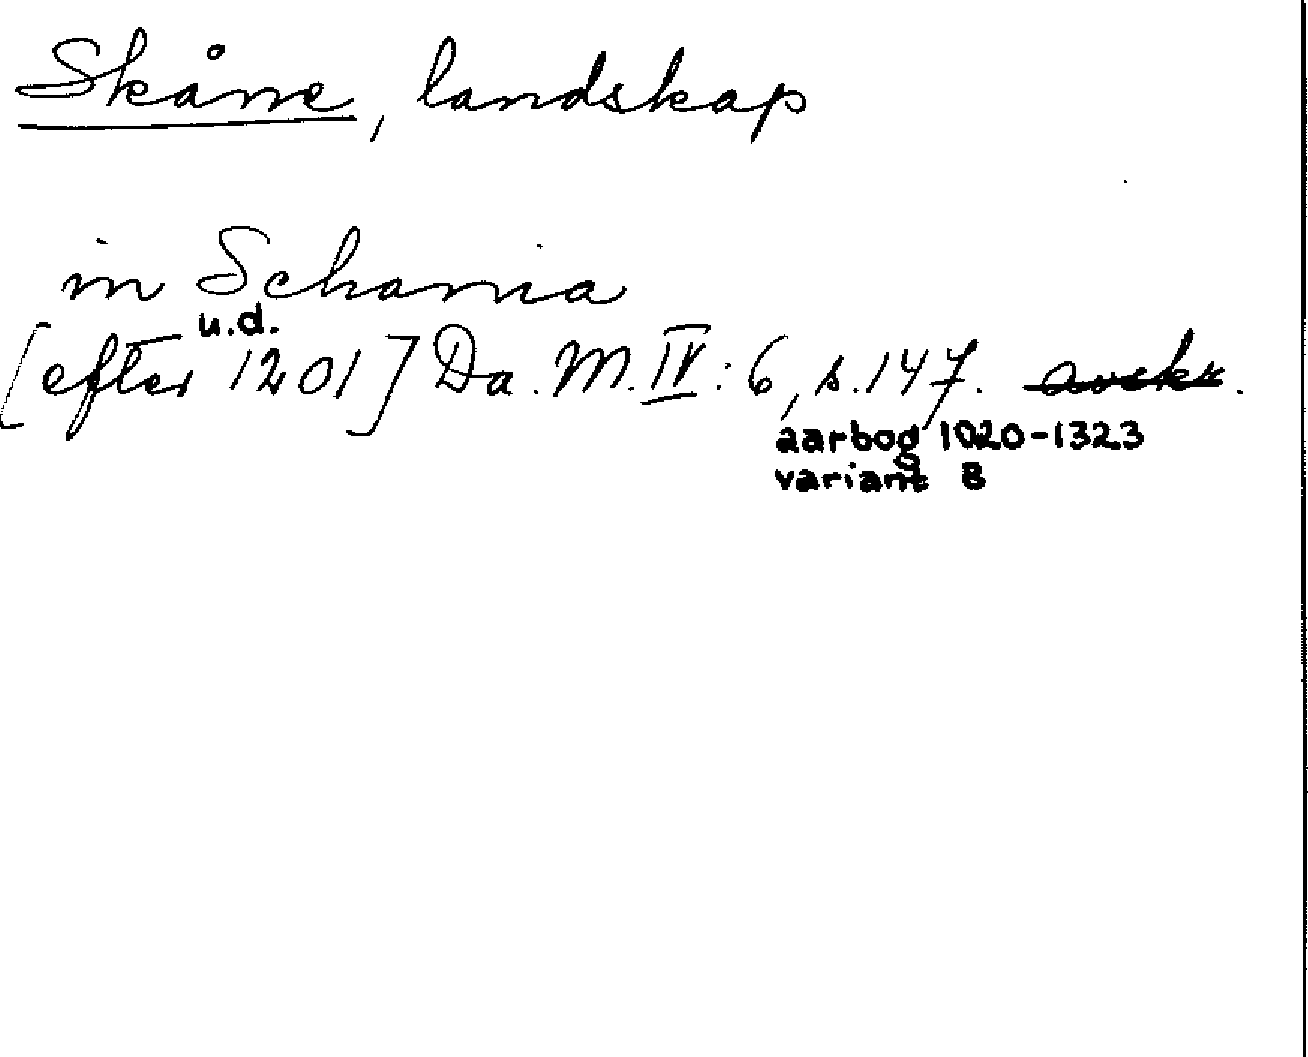 Skåne, landskap
in Schania
u.d.
[efter 1201] Da. M. IV: 6, s. 147. avskr.
aarbog 1020-1323
variant B